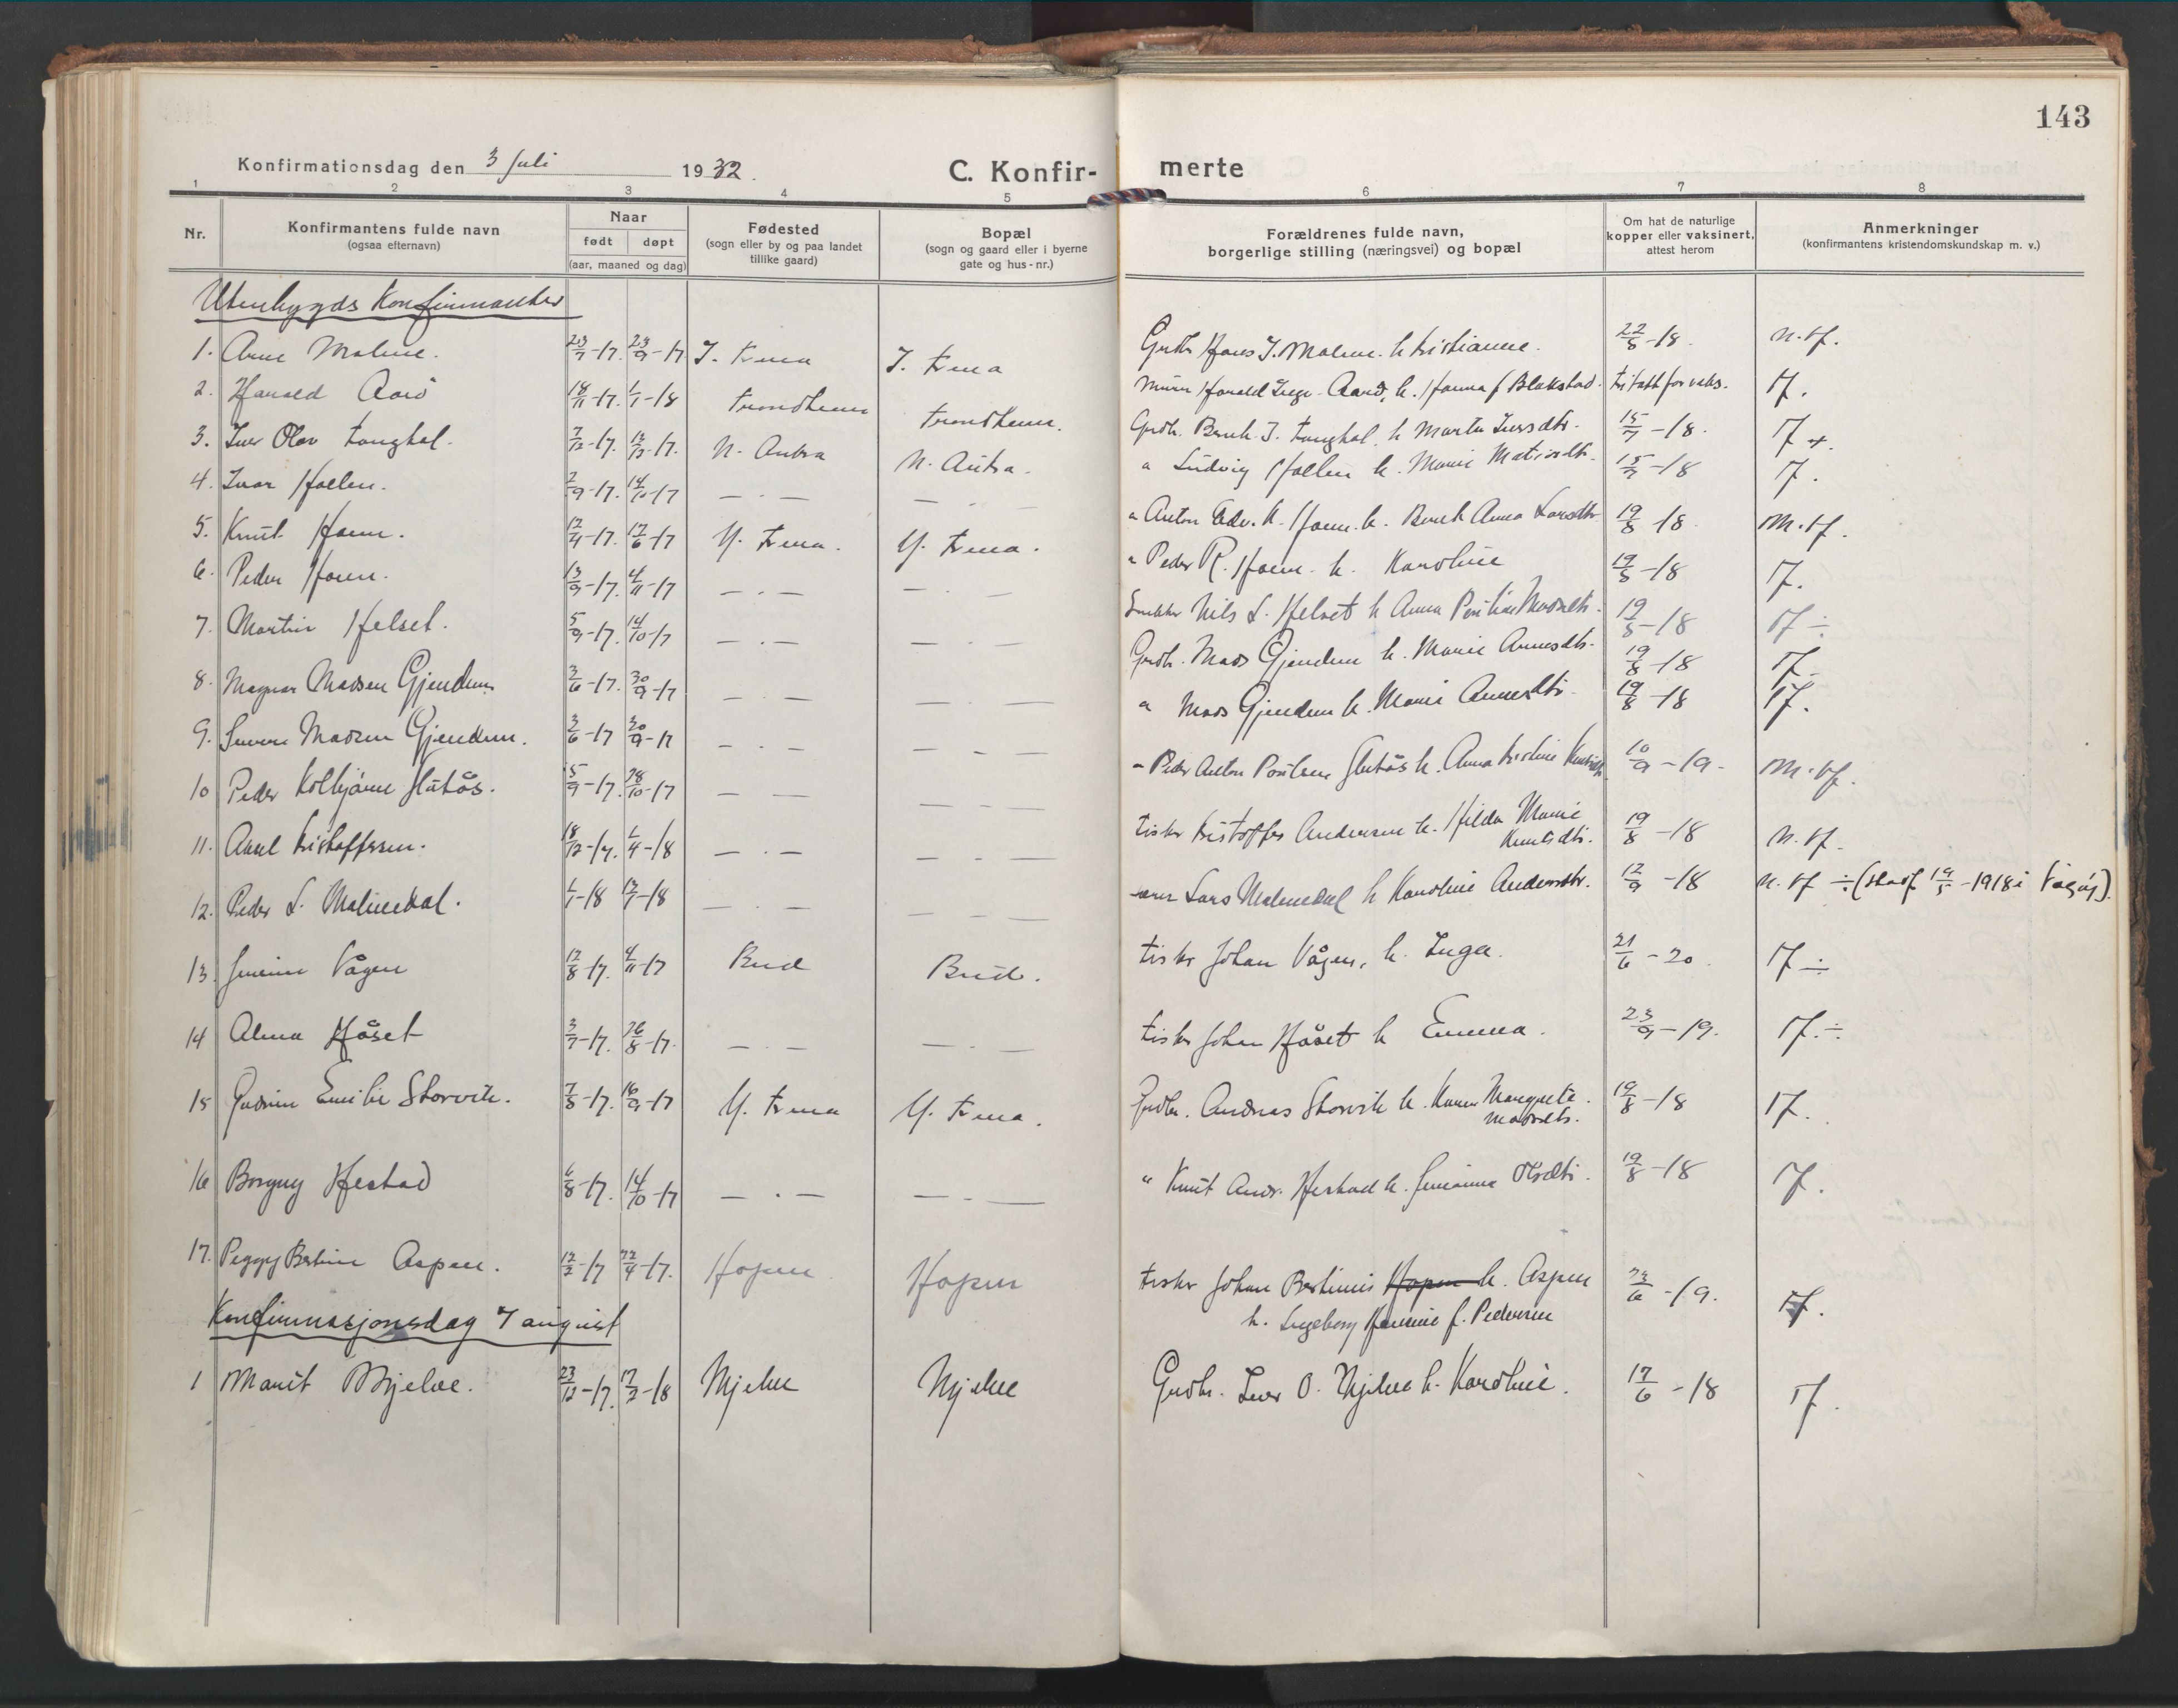 143
Konfirmationsdag den 3 Juli 1932.
C. Konfir- merte
1 2 3 4 5 6 7 8
Nr.
Konfirmantens fulde navn
(ogsaa efternavn)
Naar
født døpt
(aar, maaned og dag)
Fødested
(sogn eller by og paa landet
tillike gaard)
Bopæl
(sogn og gaard eller i byerne
gate og hus-nr.)
Forældrenes fulde navn,
borgerlige stilling (næringsvei) og bopæl
Om hat de naturlige
kopper eller vaksinert,
attest herom
Anmerkninger
(konfirmantens kristendomskundskap m. v.)
Utenbygds Konfirmanter
1. Arne Malme. 23/7-17. 23/9-17 I. Frena I. Frena Grdbr. Hans J. Malme h. Kristianne. 22/8-18. n.tf.
2. Harald Aarö 18/11-17. 1/1-18 Trondheim Trondheim. Murer Harald Inge Aarö, h. Hanna f Blakstad. fritatt for vaks. tf.
3. Iver Olav Tanghol. 7/12-17. N. Aukra N. Aukra. Grdbr. Bernh. I. Tanghol. h Marta Iversdtr. 15/7-18. tf +.
4. Ivar Hollen. 2/9-17. 14/10-17 — . — — . — " Ludvig Hollen h. Marie 15/7-18 tf.
5. Knut Harn. 12/4-17. 17/6-17 Y. Frena. Y. Frena. " Anton Edv. K. Harn. h. Anna Larsdtr 19/8-18. M.tf.
6. Peder Harn. 13/9-17. 4/11-17 — . — — . — " Peder R. Harn. h. Karoline 19/8-18 tf.
7. Martin Helset. 5/9-17. 14/10-17 — . — — . — Snekker Nils L. Helset h Anna Madsdtr. 19/8-18 tf ÷
8. Magnar Madsen Gjendem 3/6-17. 30/9-17 — . — — . — Grdbr. Mads Gjendem h. Marie Arnesdtr. 19/8-18 tf.
9. Sverre Madsen Gjendem. 3/6-17 30/9-17 — . — — . — " Mads Gjendem h. Marie Arnesdtr. 19/8-18 tf.
10 Peder Kolbjørn Slutås. 5/9-17. 28/10-17 — — — . — " Peder Anton Poulsen Slutås h. Anna Kristine Knutsdtr 10/9-19. M.tf.
11. Aksel Kristoffersen. 18/12-17. 1/4-18 — . — — . — Fisker Kristoffer Andersen h. Hilda Marie
Knutsdtr. 19/8-18 n.tf.
12. Peder L. Malmedal. 1/1-18 — . — — . — Lars Malmedal h Karoline Andersdtr. 12/9-18 n.tf ÷ 1918 i Vågøy).
13. Vågen 12/8-17. 4/11-17 Bud Bud. Fisker Johan Vågen, h. Inga. 21/6-20. tf ÷
14 Alma Håset 3/7-17. 26/8-17. — . — — . — Fisker Johan Håset h Emma. 23/9-19. tf. ÷
15 Gudrun Emilie Storvik. 7/8-17. 16/9-17 Y. Frena Y. Frena. Grdbr. Andreas Storvik h. Karen Margrete
Madsdtr. 19/8-18 tf.
16 Borgny Hestad 6/8-17. 14/10-17 — . — — . — " Knut Andr. Hestad h. Jensianna Olsdtr. 19/8-18 tf.
17. Peggy Bertine Aspen. 12/2-17 22/4-17. Hopen Hopen Fisker Johan Bertinus Hopen h. Aspen
h. Ingeborg f. Pedersen /6-19. tf.
Konfirmasjonsdag 7 august
1 Marit Mjelve. 23/12-17. 17/2-18 Mjelve Mjelve Grdbr. Iver O. Mjelve h. Karoline. 17/6-18 tf.